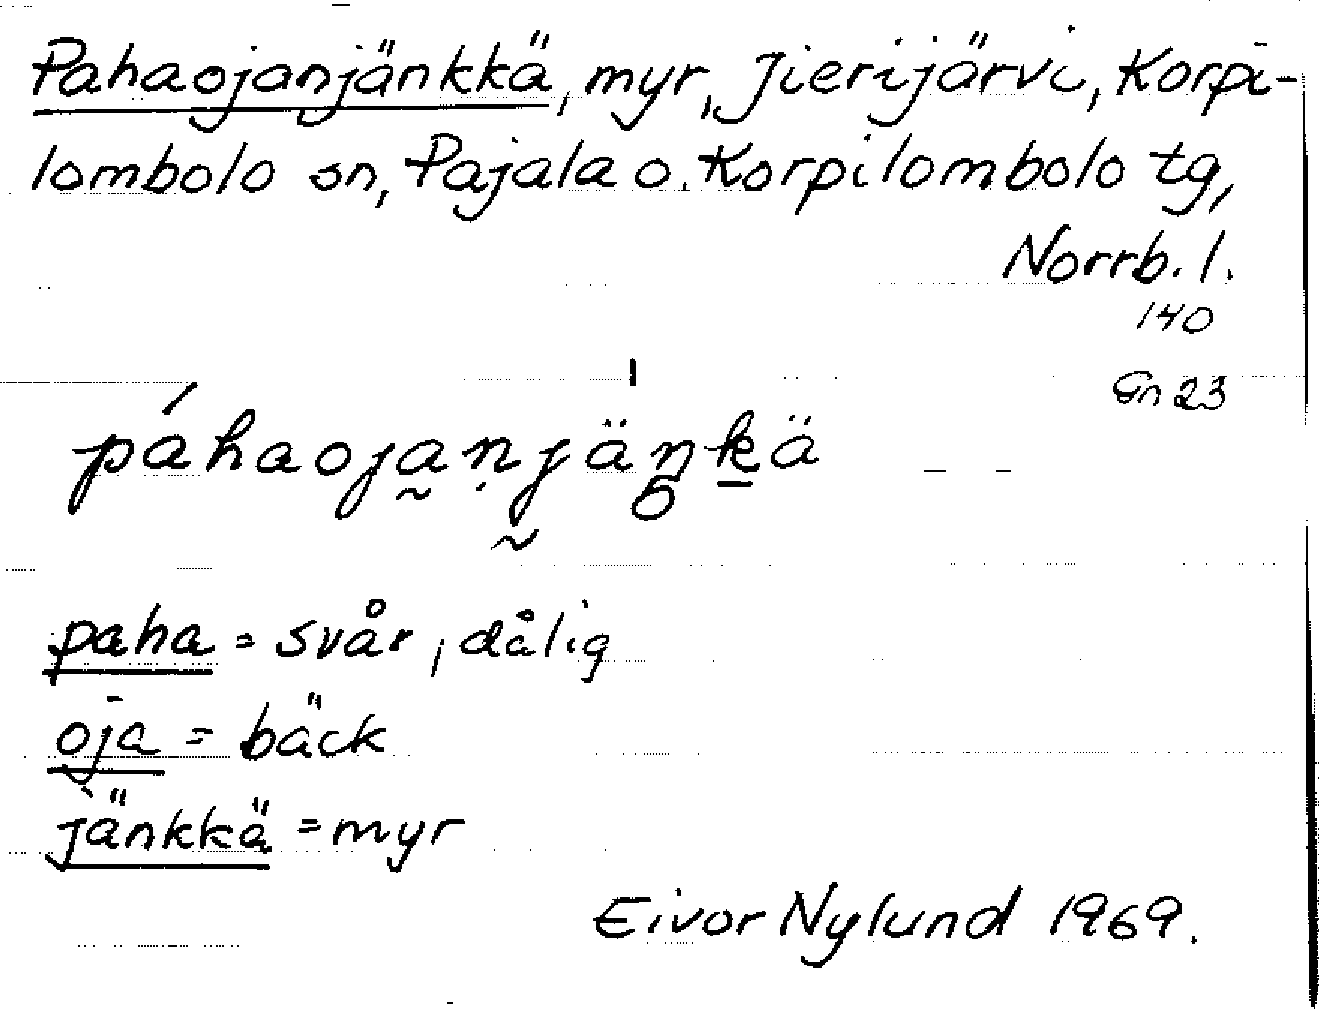 Pahaojanjänkkä, myr, Jierijärvi, Korpi-
lombolo sn, Pajala o. Korpilombolo tg,
Norrb. l.
140
Gn 23
páhaoja̰ṇjä̰ŋḵä
paha = svår, dålig
oja = bäck
jänkkä = myr
Eivor Nylund 1969.